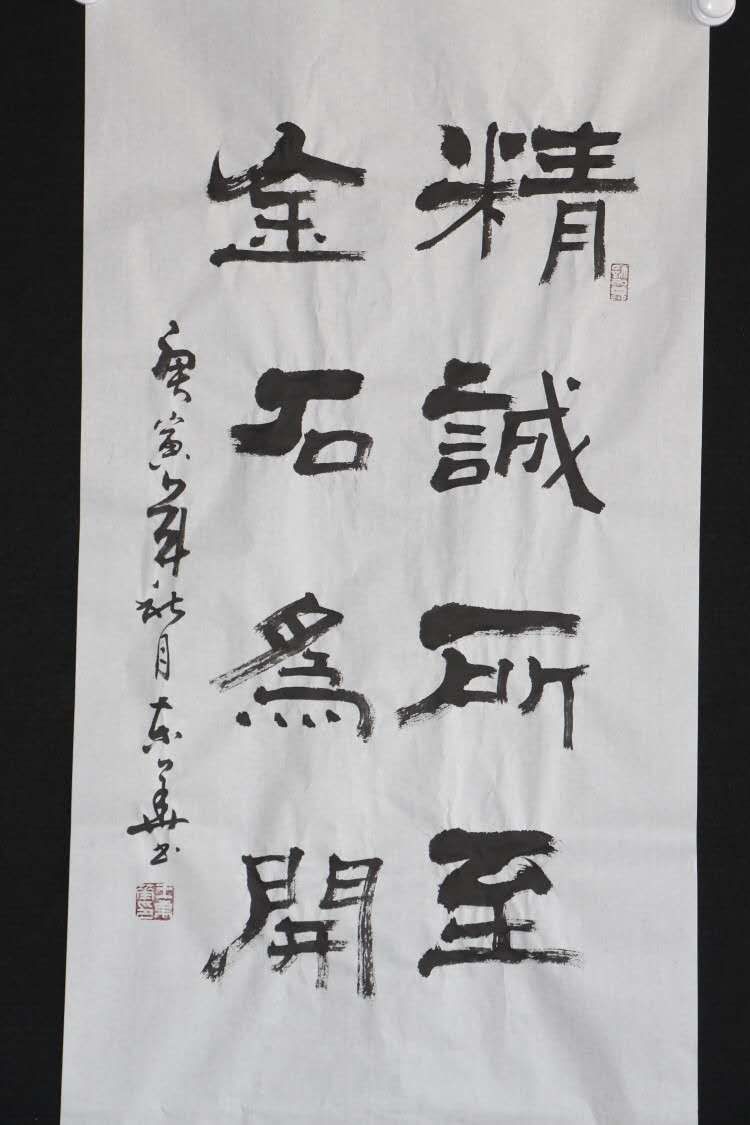 精誠所至
金石為開
庚寅年秋月东華书